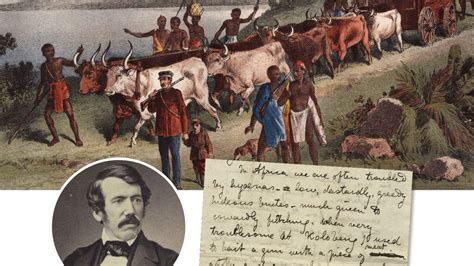 In Africa we are often troubled
by hyenas - a low, dastardly, greedy
hideous brutes - much given to
cowardly filching. When very
troublesome at Kolobeng I used
to bait a gun with a piece of meat